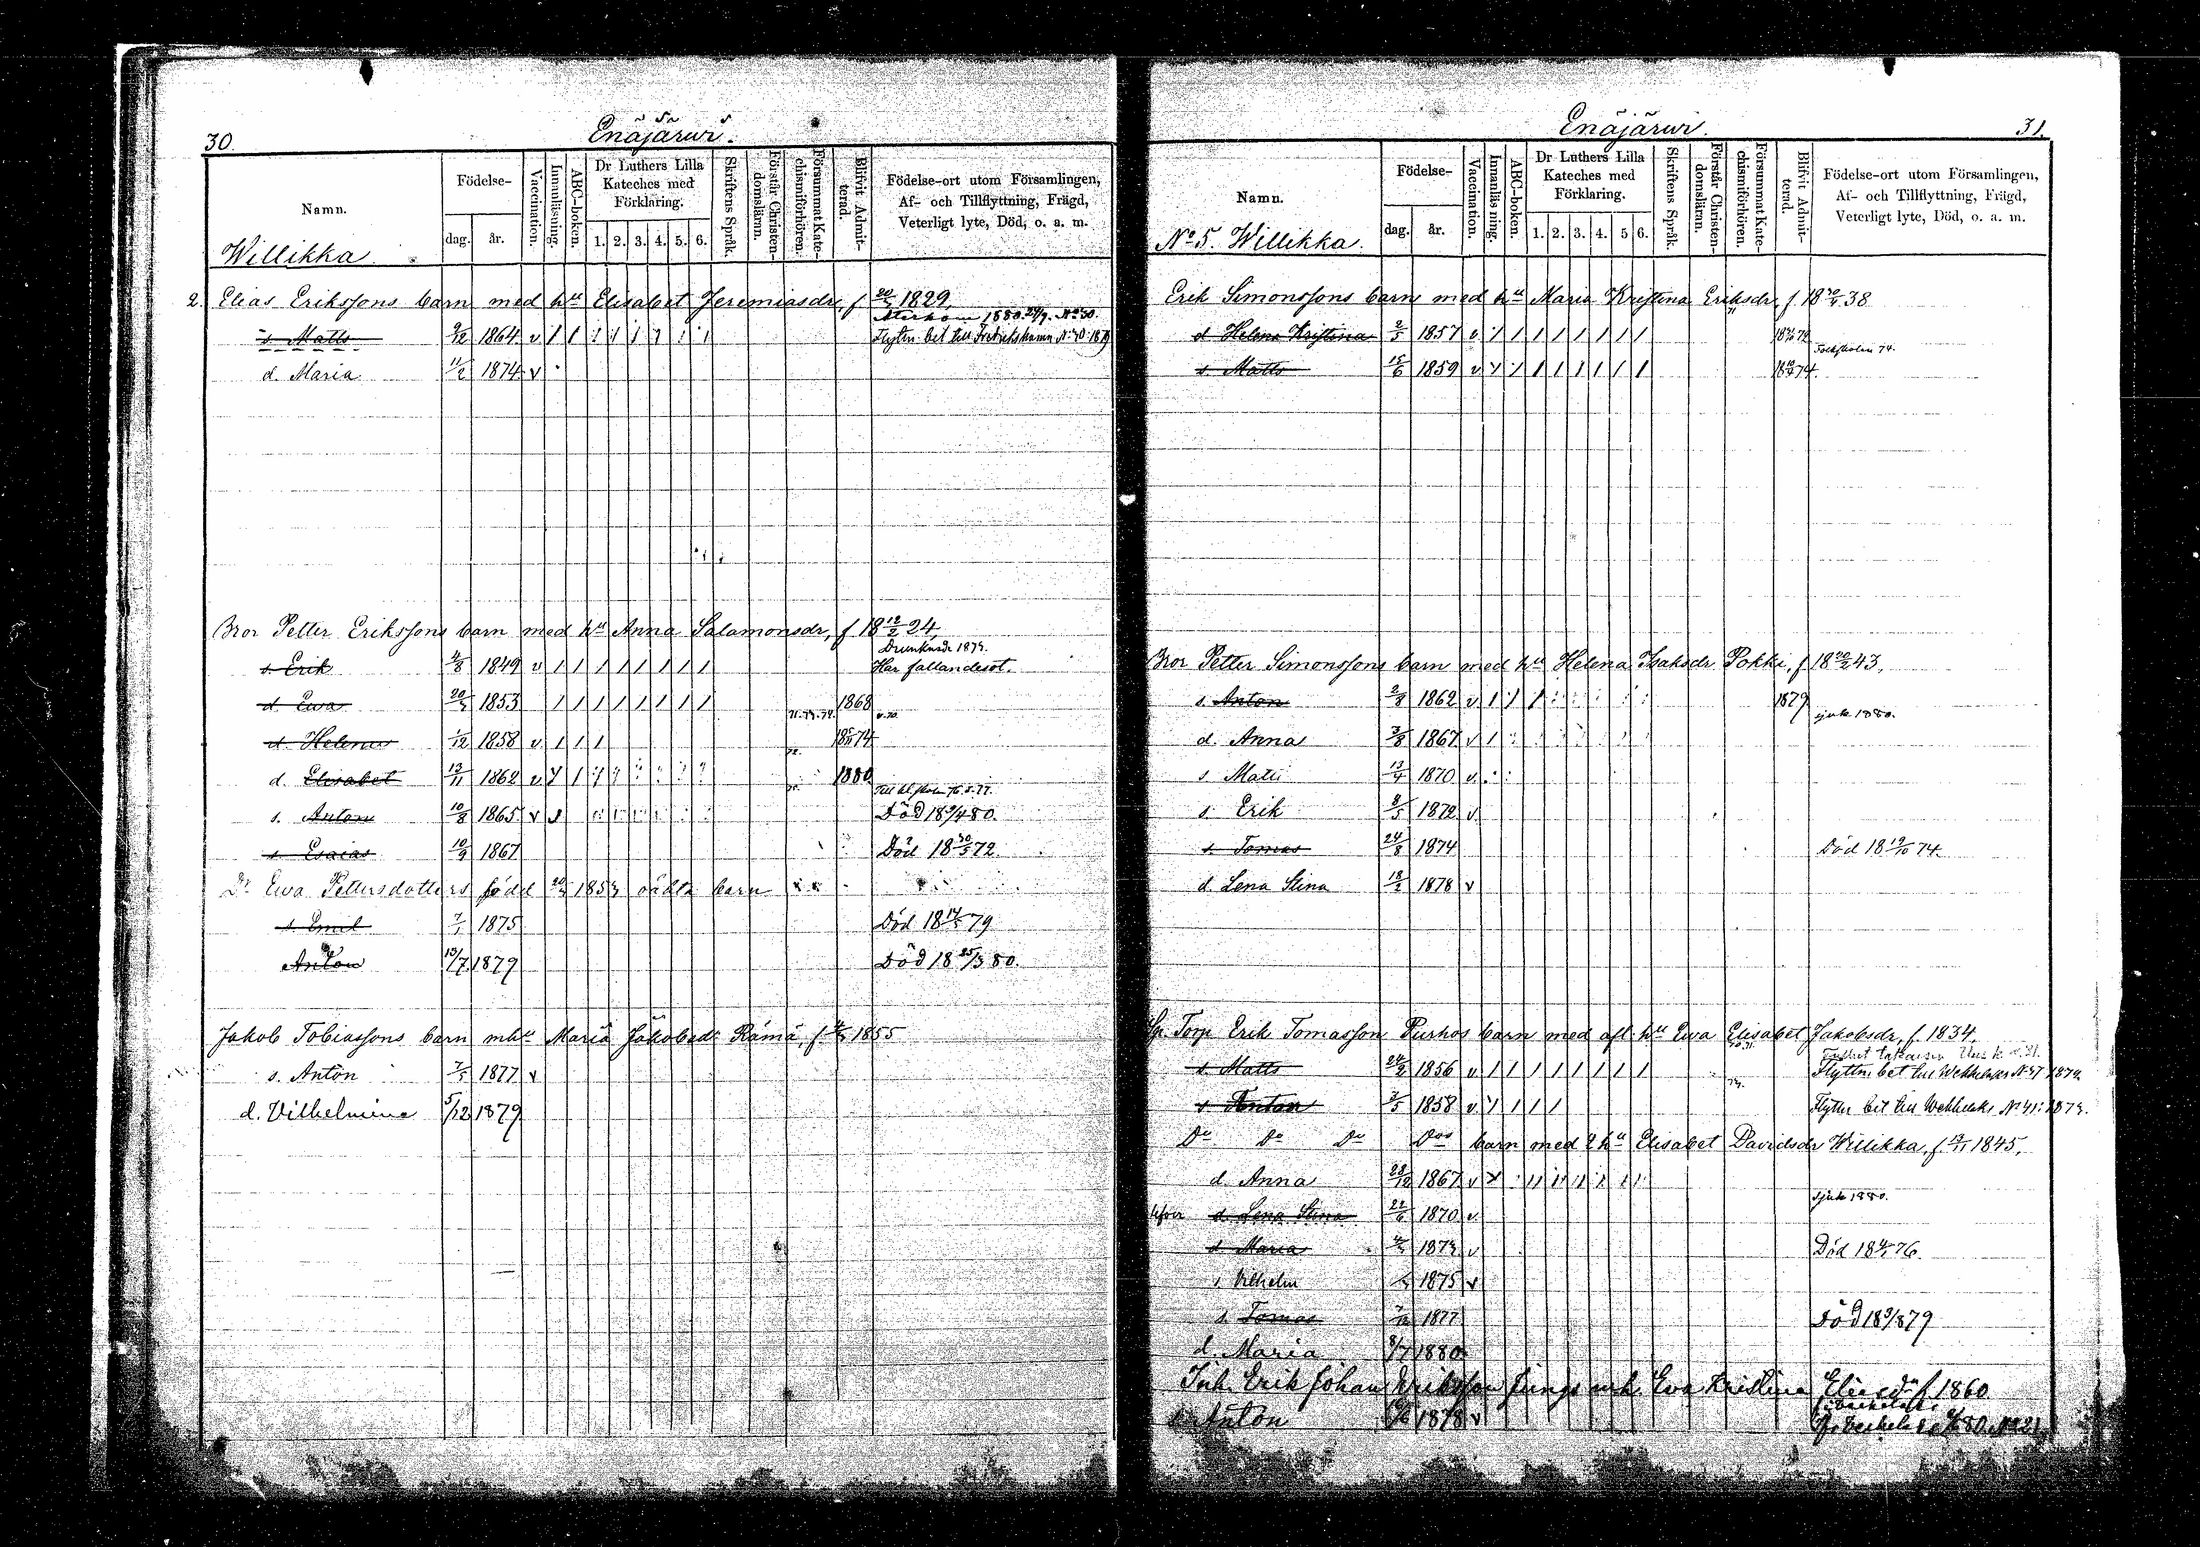 30.
Enäjärwi.
Namn.
Födelse-
dag.
år.
Vaccination.
Innanläsning.
ABC-boken.
Dr Luthers Lilla
Kateches med
Förklaring.
1. 2. 3. 4. 5. 6.
Skriftens Språk.
Förstår Christen-
domsläran.
Försummat Kate-
chismiförhören.
Blifvit Admit-
terad.
Födelse-ort utom Församlingen,
Af- och Tillflyttning, Frägd,
Veterligt lyte, Död, o. a. m.
Willikka
2. Elias Erikssons barn med hu Elisabet Jeremiasdr, f 1829.
Återkom 1880 No 30.
s. Matts 9/12 1864 v Flyttn. bet till Fredrikshamn No 30. 1879
d. Maria 11/2 1874 v
Bror Petter Erikssons barn med hu Anna Salamonsdr, f 18 12/2 24,
s. Erik 4/8 1849 v Har fallandesot.
d. Ewa 1853 1868
d. Helena 1/12 1858 v 74
d. Elisabet 13/11 1862 v 1880
s. Anton 10/8 1865 v Död 18 9/4 80.
s. Esaias 10/9 1867 Död 18 72.
Dr Ewa Pettersdotters född 1853 oäkta barn
s. Emil 7/1 1875 Död 18 79
Anton 13/7 1879 Död 18 25/3 80.
Jakob Tobiassons barn mhu Maria Jakobsdr Rämä, f 1855
s. Anton 1877 v
d. Vilhelmina 5/12 1879
Enäjärwi.
31.
Namn.
Födelse-
dag.
år.
Vaccination.
Innanläsning.
ABC-boken.
Dr Luthers Lilla
Kateches med
Förklaring.
1. 2. 3. 4. 5 6.
Skriftens Språk.
Förstår Christen-
domsläran.
Försummat Kate-
chismiförhören.
Blifvit Admit-
terad.
Födelse-ort utom Församlingen,
Af- och Tillflyttning, Frägd,
Veterligt lyte, Död, o. a. m.
No 5. Willikka.
Erik Simonssons barn med hu Maria Kristina Eriksdr, f 18 38
d Helena Kristina 2/5 1857 v
s. Matts 15/6 1859 v 74.
Bror Petter Simonssons barn med hu Helena Isaksdr Pokki, f 18 20/2 43,
s. Anton 2/8 1862 v 1879
sjuk 1880.
d. Anna 3/8 1867 v
s Matti 13/4 1870 v.
s Erik 8/5 1872 v
s. Tomas 24/8 1874 Död 18 19/10 74.
d. Lena Stina 18/2 1878 v
Torp Erik Tomasson Purhos barn med afl. hu Ewa Elisabet Jakobsdr, f. 1834.
s. Matts 24/2 1856 v Flyttn. bet till Wekkelaks 1872
s Anton 3/5 1858 v Flyttn bet till Wekkelaks No 41: 1873.
Do Do Do Dos barn med 2 hu Elisabet Davidsdr Willikka, f. 1845.
d. Anna 28/12 1867 v
sjuk 1880.
d Lena Stina 22/6 1870 v
d Maria 1873 v Död 18 76.
s Vilhelm 1875 v
s. Tomas 1877 Död 18 9/8 79
d. Maria 8/7 1880
Inh. Erik Johan Eriksson Jungs mh. Eva Kristina Eliasdr f. 1860
s Anton 1878 v